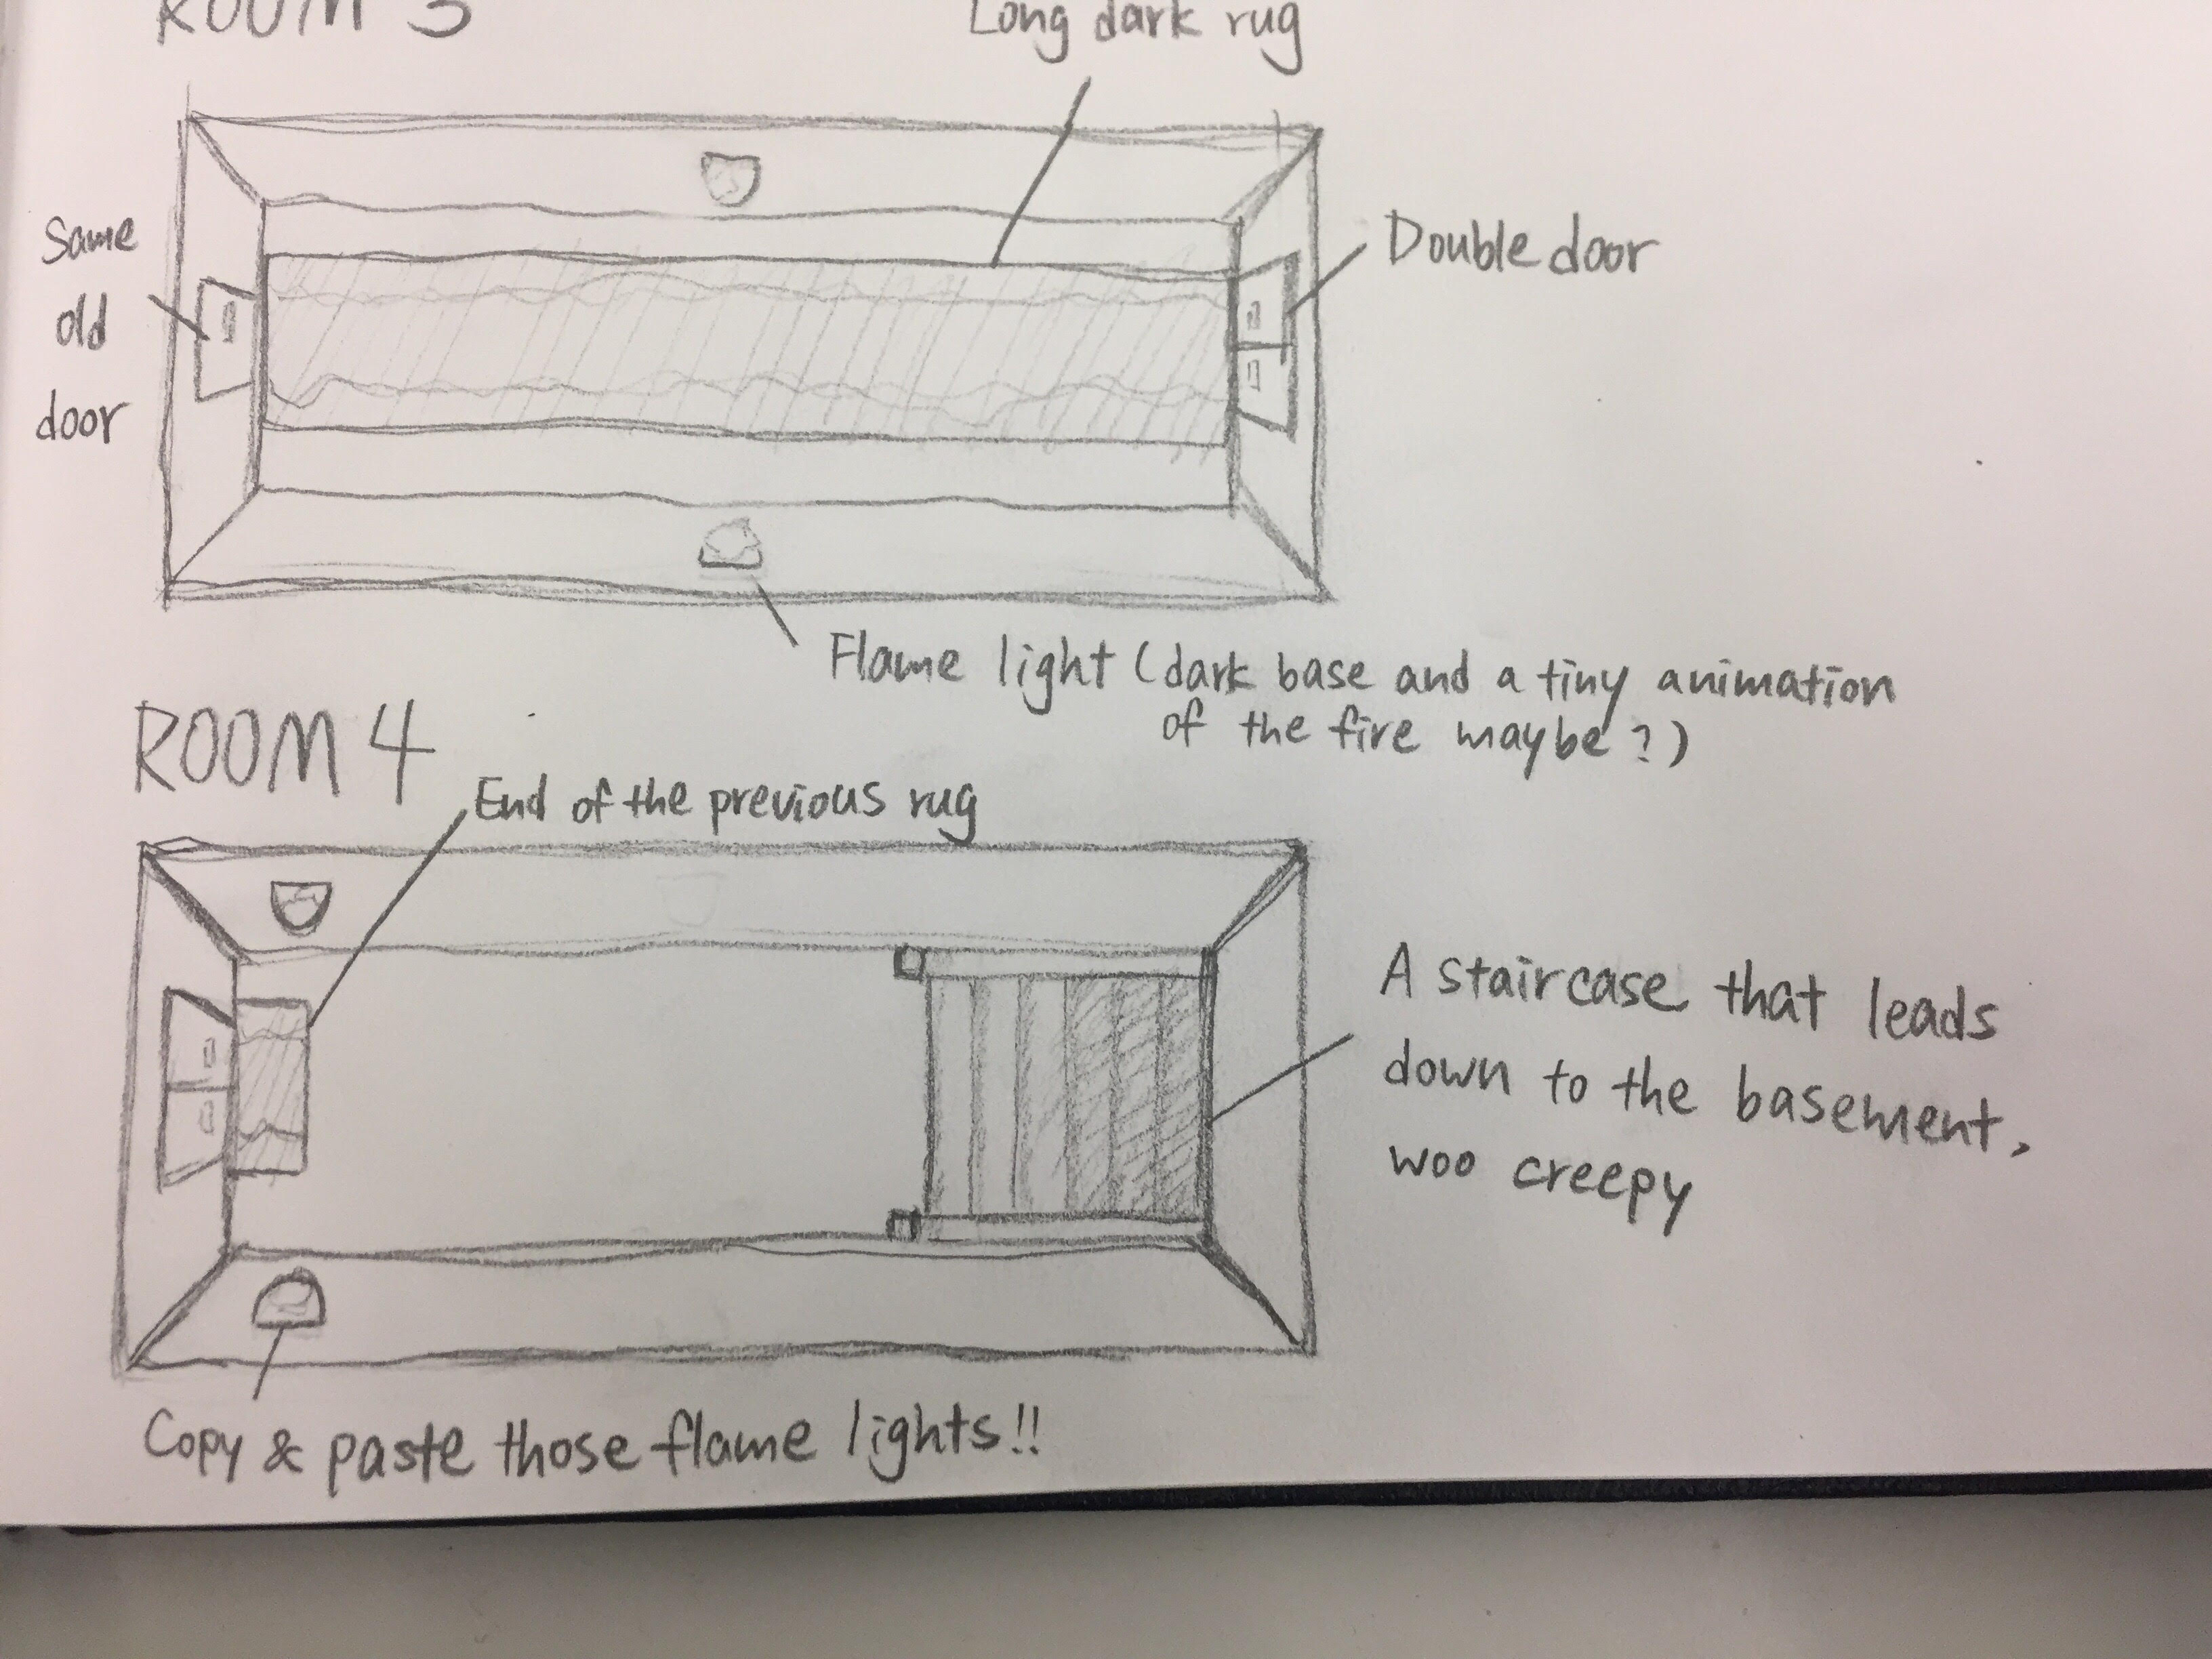 ROOM 3
Long dark rug
Same
old
door
Double door
Flame light (dark base and a tiny animation
of the fire maybe?)
ROOM 4
End of the previous rug
A staircase that leads
down to the basement,
woo creepy
Copy & paste those flame lights!!